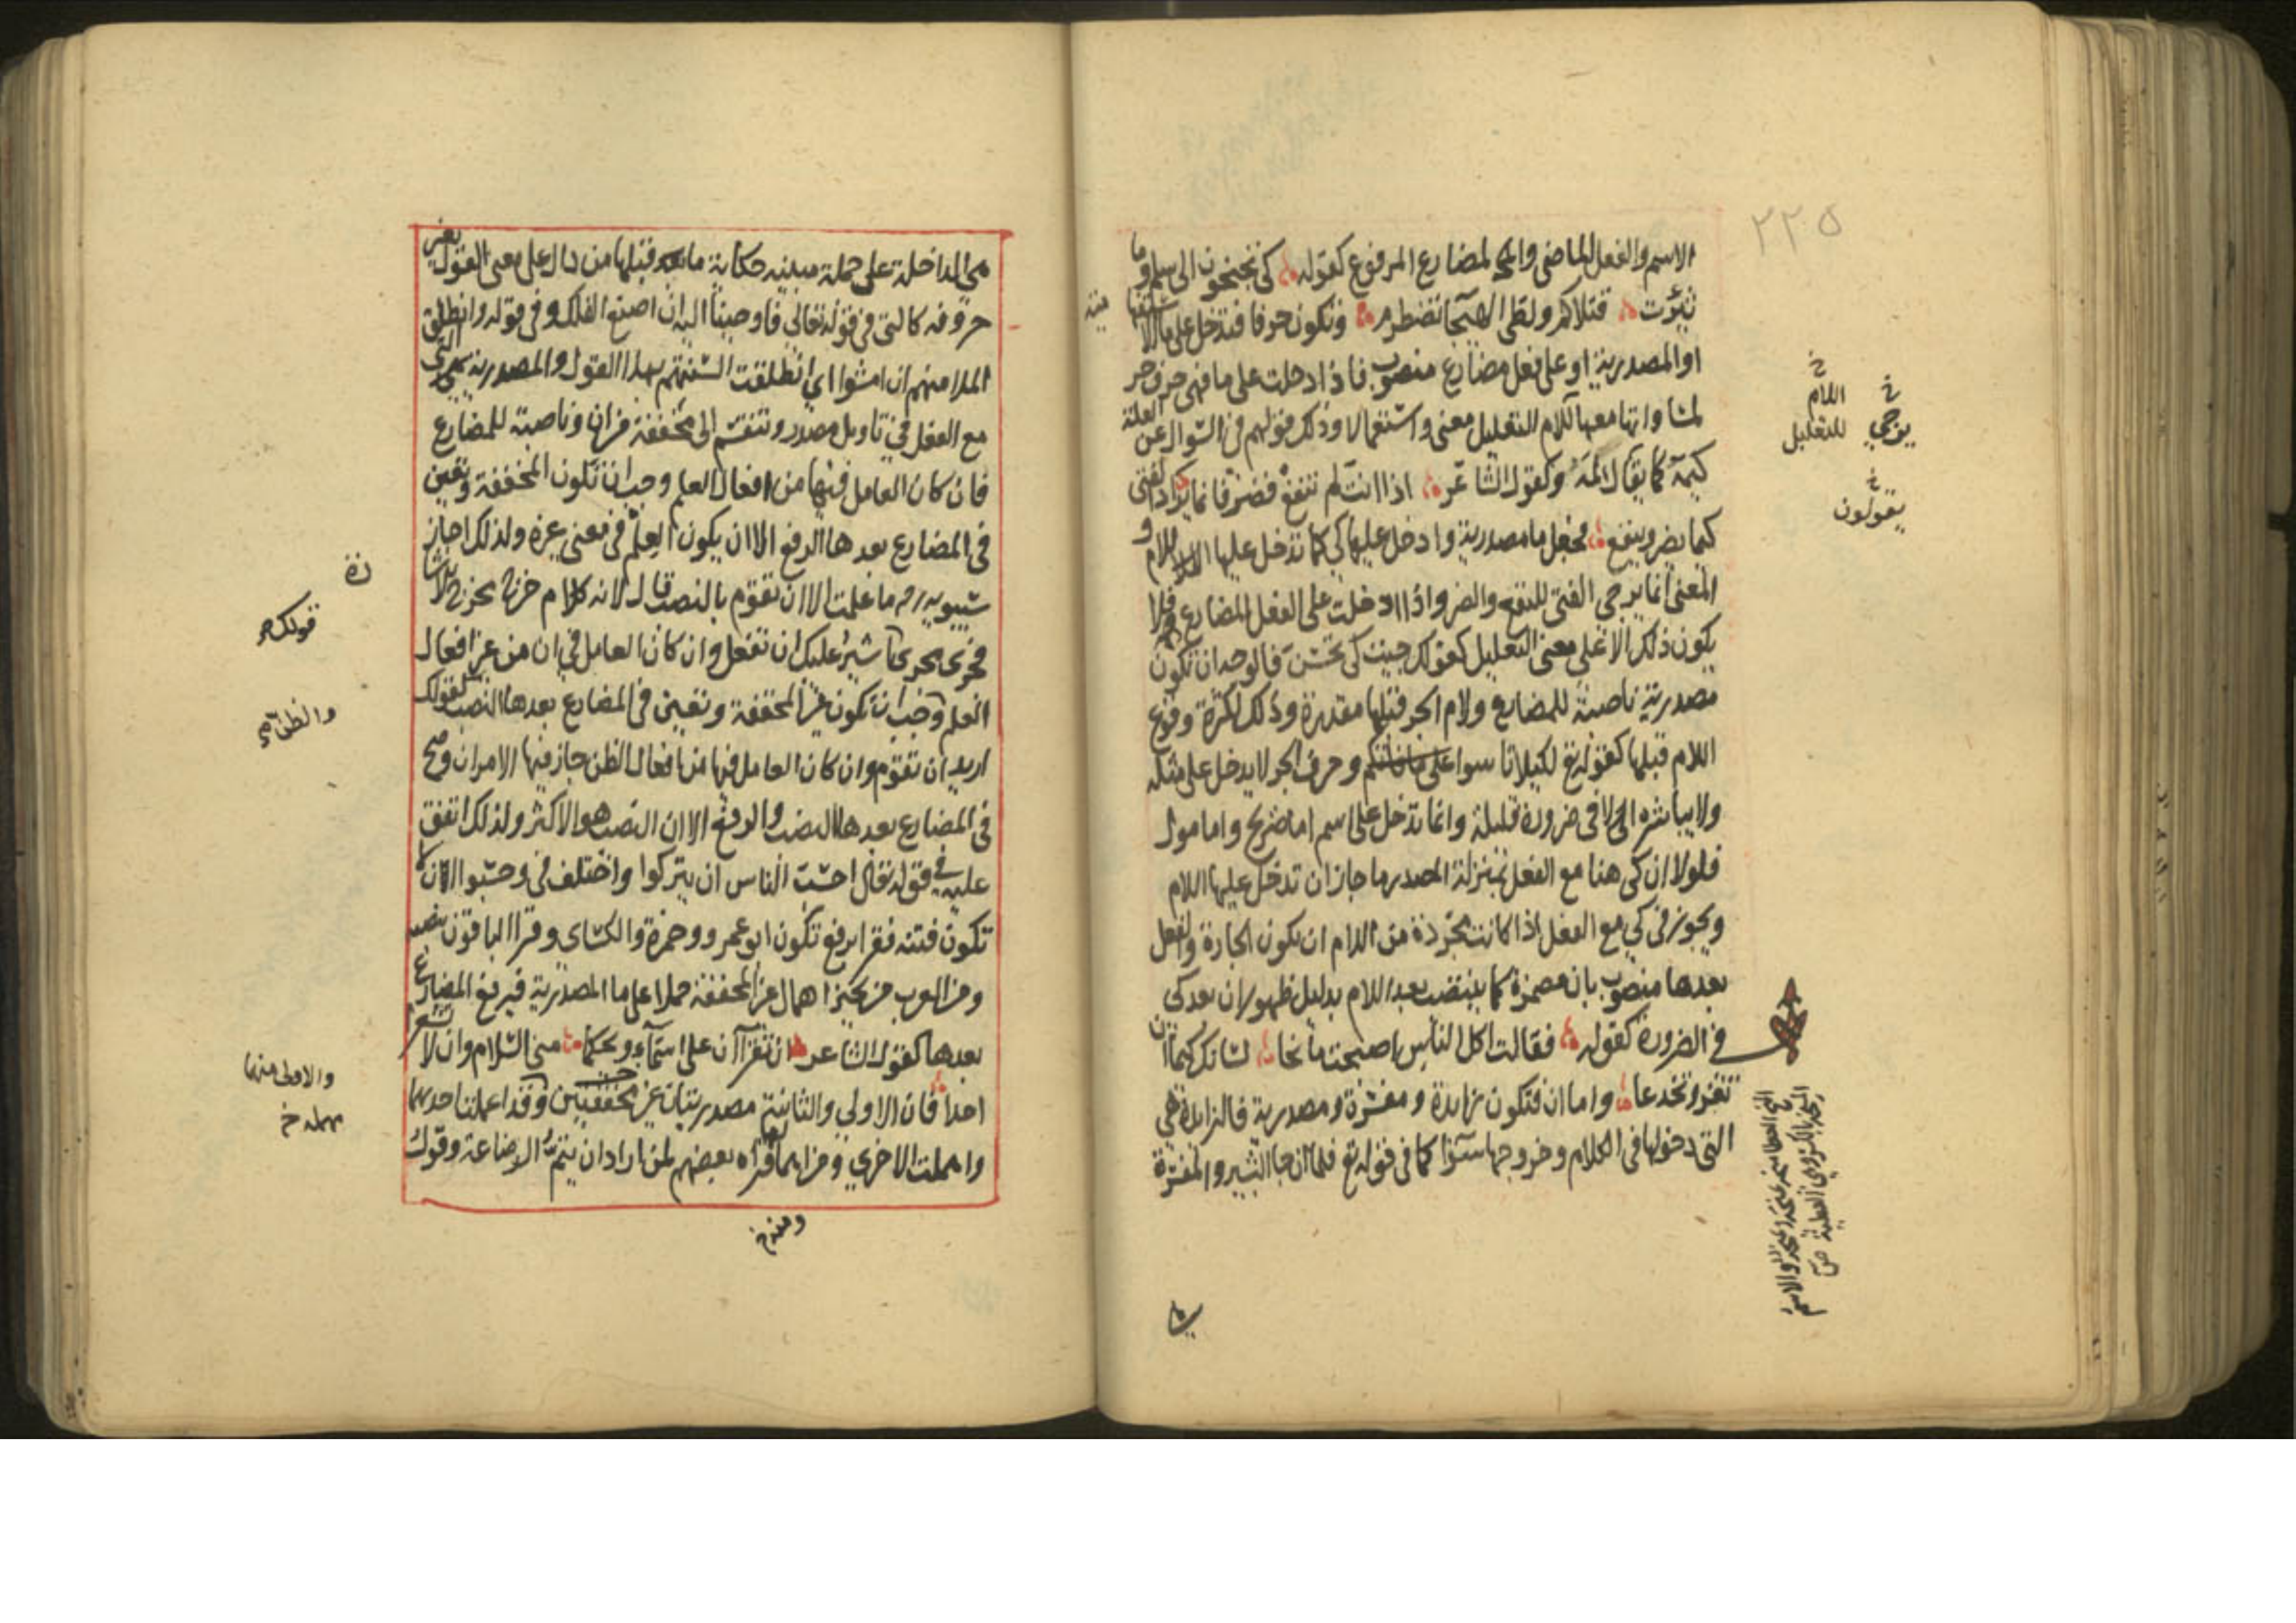 ٢٢٥
الاسم والفعل الماضى والمضارع المرفوع كقوله كى تجنحون الى سلم وما
ثئرت قتلاكم ولظى الهيجا تضطرم وتكون حرفا فتدخل على ما الاستفهامية
او المصدرية او على فعل مضارع منصوب فاذا دخلت على ما فهى حرف جر
لمساواتها معها للام التعليل معنى واستعمالا وذلك قولهم فى السوال عن العلة
كيمه كما يقال لمه وكقول الشاعر اذا انت لم تنفع فضر فانما يراد الفتى
كيما يضر وينفع فجعل ما مصدرية وادخل عليها كى كما تدخل عليها اللام و
المعنى انما يرجى الفتى للنفع والضر واذا دخلت على الفعل المضارع فلا
يكون ذلك الا على معنى التعليل كقولك جيت كى تحسن فالوجه ان تكون
مصدرية ناصبة للمضارع ولام الجر قبلها مقدرة وذلك لكثرة وقوع
اللام قبلها كقوله تع لكيلا تاسوا على ما فاتكم وحرف الجر لا يدخل على مثله
ولا يباشره الا فى ضرورة قليلة وانما تدخل على اسم اما صريح واما مول
فلولا ان كى هنا مع الفعل بمنزلة المصدر ما جاز ان تدخل عليها اللام
ويجوز فى كى مع الفعل اذا كانت مجردة من اللام ان تكون الجارة والفعل
بعدها منصوب بان مضمرة كما ينتصب بعد اللام بدليل ظهور ان بعد كى
فى الضرورة كقوله فقالت اكل الناس اصبحت مانحا لسانك كيما ان
تغر وتخدعا واما ان فتكون زايدة ومفسرة ومصدرية فالزايدة هى
التى دخولها فى الكلام وخروجها سوا كما فى قوله تع فلما ان جا البشير والمفسرة
خ
اللام
للتعليل
خ
يرجى
خ
يقولون
هى الداخلة على جملة مبينه حكاية ما قبلها من دال على معنى القول بغير
حروفه كالتى فى قوله تعالى فاوحينا اليه ان اصنع الفلك وفى قوله وانطلق
الملا منهم ان امشوا اى انطلقت السنتهم بهذا القول والمصدرية هى التى
مع الفعل فى تاويل مصدر وتنقسم الى مخففة من ان وناصبة للمضارع
فان كان العامل فيها من افعال العلم وجب ان تكون المخففة وتعين
فى المضارع بعدها الرفع الا ان يكون العلم فى معنى غيره ولذلك اجاز
سيبويه ره ما علمت الا ان تقوم بالنصب قال لانه كلام خرج مخرج الاشارة
فجرى مجرى اشير عليك ان تفعل وان كان العامل فى ان من غير افعال
العلم وجب ان تكون غير المخففة وتعين فى المضارع بعدها النصب كقولك
اريد ان تقوم وان كان العامل فيها من افعال الظن جاز فيها الامران وصح
فى المضارع بعدها النصب والرفع الا ان النصب هو الاكثر ولذلك اتفق
عليه فى قوله تعالى احسب الناس ان يتركوا واختلف فى وحسبوا ان لا
تكون فتنه فقرا برفع تكون ابو عمرو وحمزة والكساى وقرا الباقون بنصبه
ومن العرب من يجيز اهمال غير المخففة حملا على ما المصدرية فيرفع المضارع
بعدها كقول الشاعر ان تقرآن على اسمآء ويحكما منى السلام وان لا تشعرا
احدا فان الاولى والثانية مصدريتان غير مخففتين وقد اعملت احديهما
واهملت الاخرى ومن اهمالها قراة بعضهم لمن اراد ان يتم الرضاعة وقولك
قولك
والظن
والاولى منهما
مهمله خ
ومنه خ